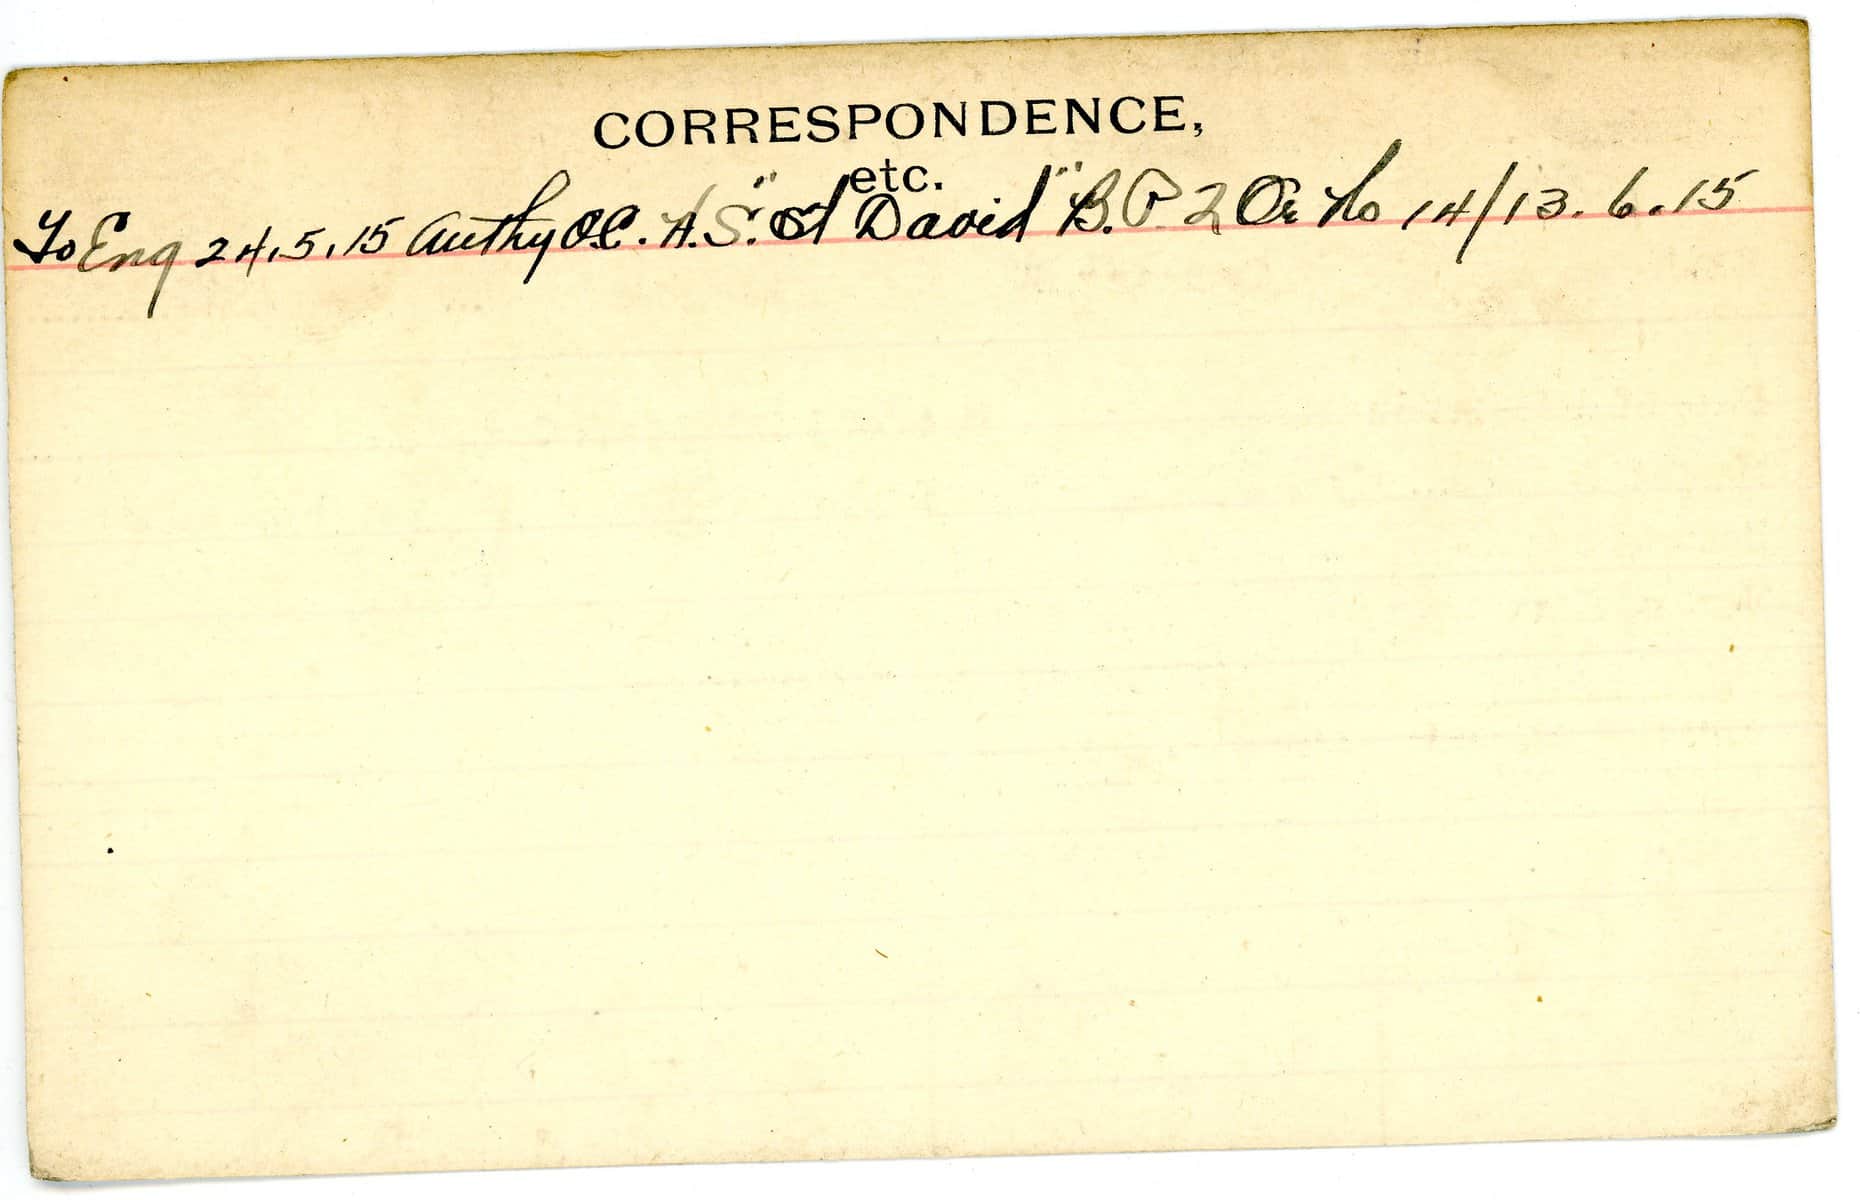 CORRESPONDENCE,
etc.
To Eng 24.5.15 Authy O.C. H.S. "St David" B.P. 2 Or No 14/13.6.15